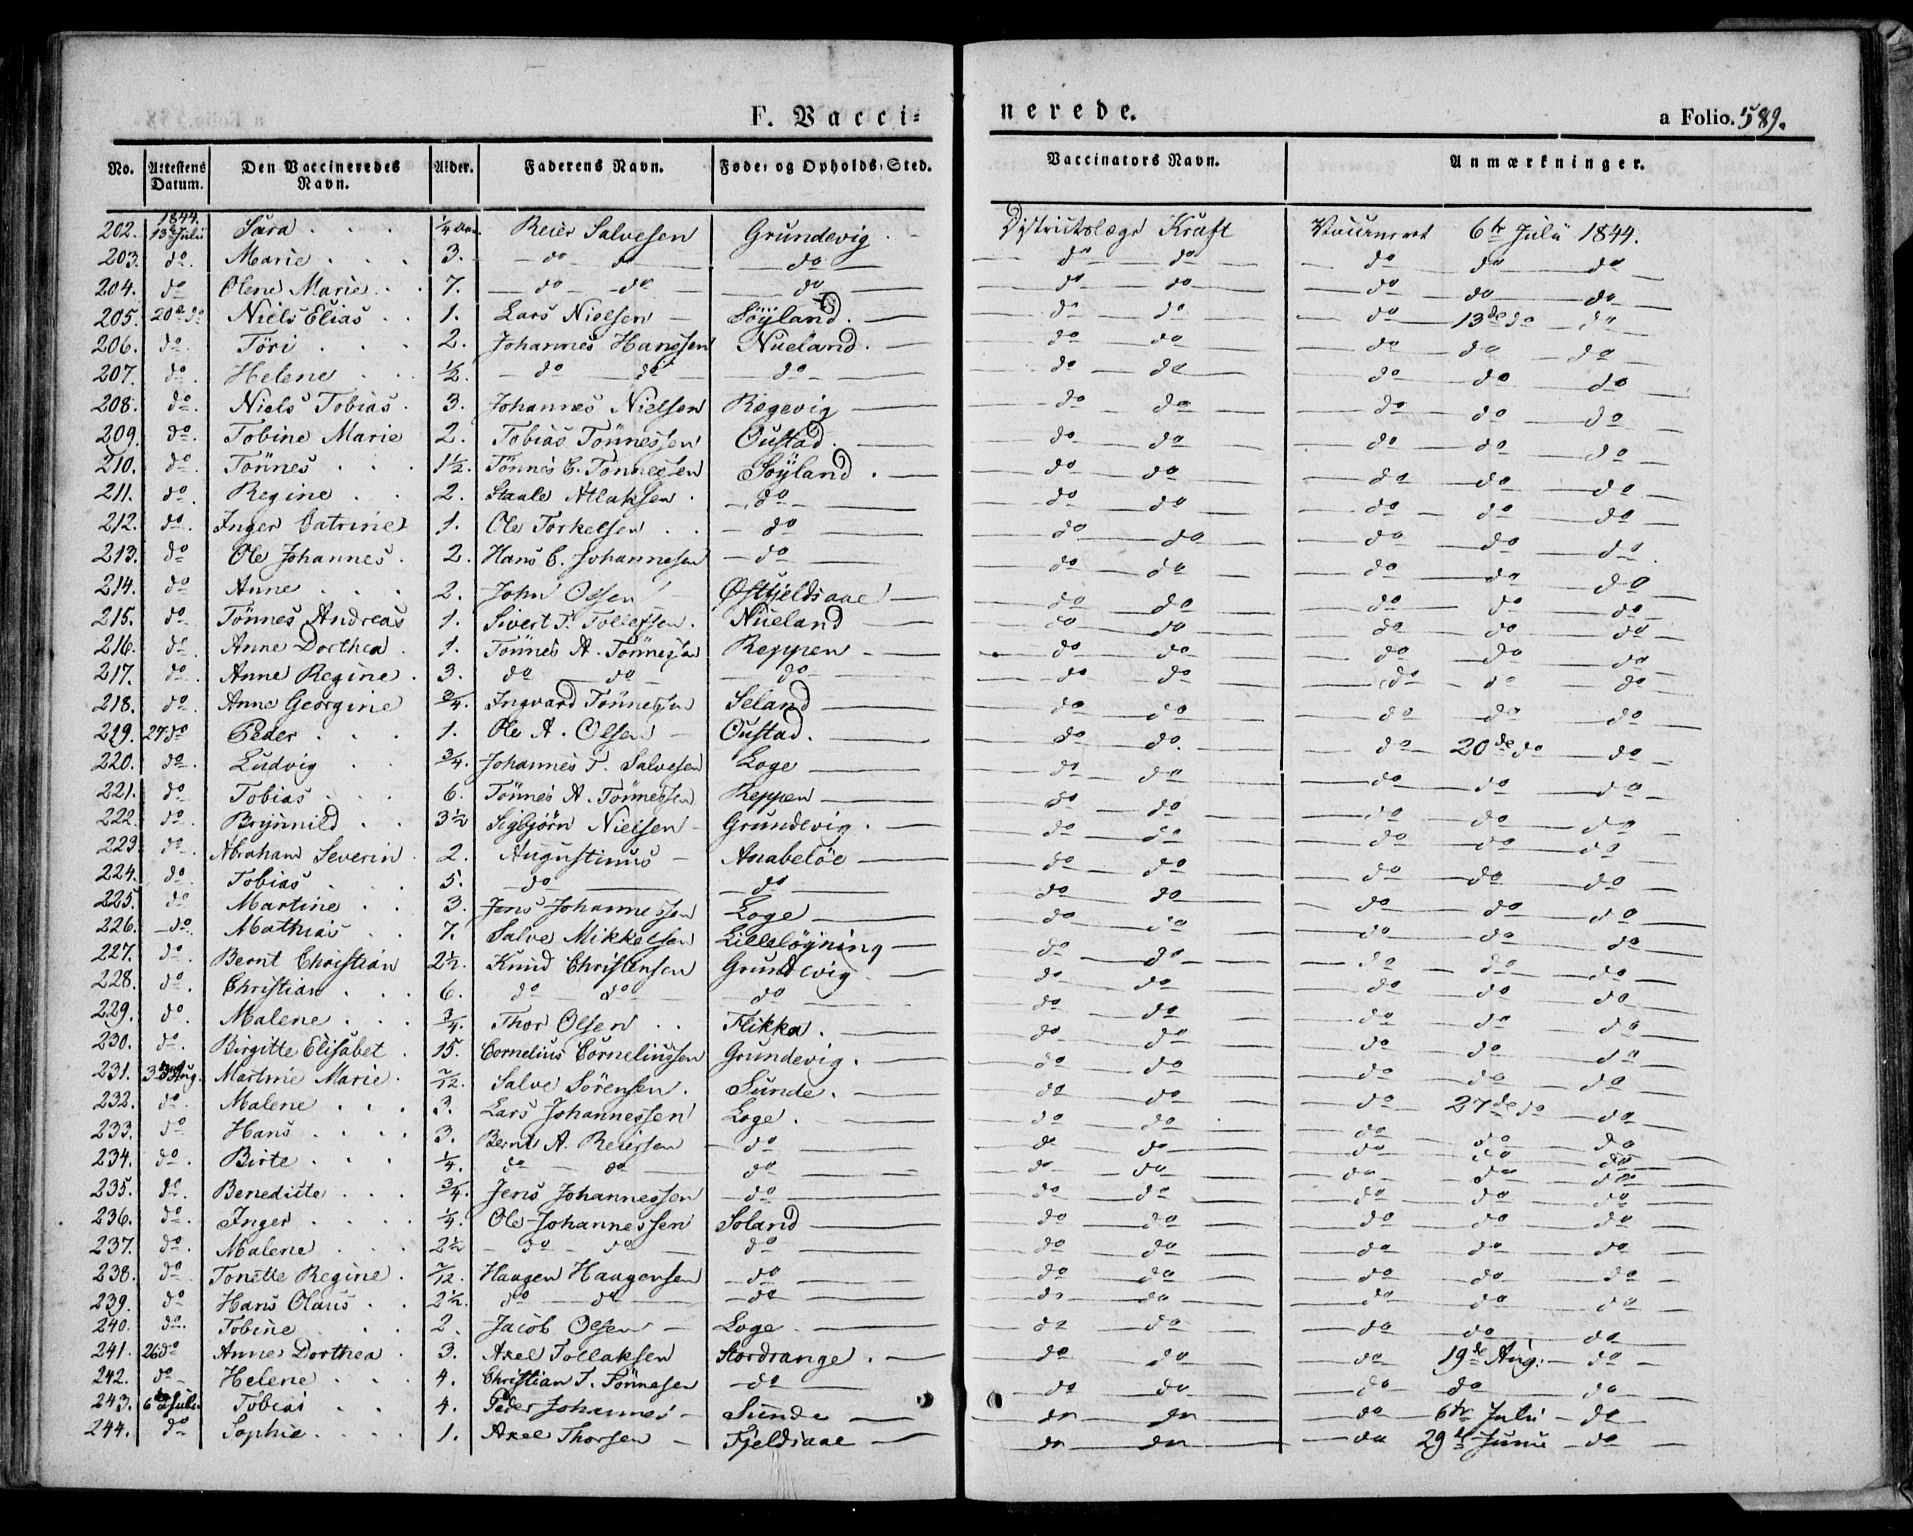 F. Vacci- nerede. a Folio. 589.
No. Attestens Datum. Den Vaccineredes Navn. Alder. Faderens Navn. Føde- og Opholds-Sted. Vaccinators Navn. Anmærkninger.
1844.
202. 13de Juli Sara . . . 1/4 Aar Reier Salvesen Grundevig Districtslæge Kraft Vaccineret 6te Juli 1844.
203. do. Marie . . . 3. do do do do do do do do
204. do Olene Marie . . 7. do do do do do do do do
205. 20de do Niels Elias . . 1. Lars Nielsen Söyland. do do do 13de do do
206. do. Töri . . . 2. Johannes Hanssen Nueland. do do do do do
207. do. Helene . . 1/2. do do do do do do do do
208. do. Niels Tobias. 3. Johannes Nielsen Rægevig do do do do do
209. do. Tobine Marie 2. Tobias Tönnessen Oustad. do do do do do
210. do. Tönnes . . . 1 1/2. Tönnes C. Tönnessen Söyland. do do do do do
211. do. Regine . . 2. Staale Atlaksen. do do do do do do
212. do. Inger Catrine 1. Ole Torkelsen . . do do do do do do
213. do Ole Johannes. 2. Hans C. Johannesen do do do do do do
214. do Anne . . . 2. John Olsen Østfjeldsaae do do do do do
215. do. Tönnes Andreas 1. Sivert T. Tollefsen. Nueland do do do do do
216. do Anne Dorthea. 1. Tönnes A. Tönnessen Reppen do do do do do
217. do. Anne Regine. 3. do do do do do do do do
218. do. Anne Georgine 3/4. Ingvard Tönnessen Seland do do do do do
219. 27 do Peder . . . 1. Ole A. Olsen Oustad. do do. do 20de do do
220. do. Ludvig . . 3/4. Johannes T. Salvesen Loge do do do do do
221. do Tobias . . . 6. Tönnes A. Tönnessen Reppen do do do do do
222. do. Brynnild . . 3 1/2 Sigbjörn Nielsen Grundevig. do do do do do
223. do. Abraham Severin. 2. Augustinus Anabelöe do do do do do
224. do. Tobias . . . 5. do do do do do do do
225. do Martine . . 3. Jens Johannessen Loge do do do do do
226. do. Mathias . . 7. Salve Mikkelsen Lillelögning do do do do do
227. do. Bernt Christian 2 1/2. Knud Christensen Grundevig do do do do do
228. do. Christian . . . 6. do do do do do do do do
229. do. Malene . . . 3/4. Thor Olsen . . Flikka. do do do do do
230. do. Birgitte Elisabet. 15. Cornelius Corneliussen Grundevig. do do do do do
231. 3die Aug. Martine Marie. 7/12. Salve Sörensen. Sunde. do do do do do
232. do. Malene . . . 3. Lars Johannessen Loge. do do do 27de do do
233. do Hans . . . . 3. Bernt A. Reiersen do do do do do do
234. do. Birte . . . 1/4. do do do do do do do do
235. do. Benedicte . . . 3/4. Jens Johannessen do do do do do do
236. do. Inger . . . . 1/4. Ole Johannessen Soland do do do do do
237. do. Malene . . . 2 1/2 do do do do do do do do
238. do Tonette Regine. 7/12. Haagen Haagensen do do do do do do
239. do Hans Olaus . . 2 1/2. do do do do do do do do
240. do. Tobine . . . 2. Jacob Olsen Loge do do do do do
241. 26 do Anne Dorthea. 3. Axel Tollaksen Stordrange. do do do 19de Aug. do
242. do Helene . . . 4. Christian T. Tönnesen do do do do do do
243. 6te Juli Tobias . . 4. Peder Johannes Sunde do do do 6te Juli do
244. do Sophie . . . . 1. Axel Thorsen Fjeldsaae do do do 29de Juni do